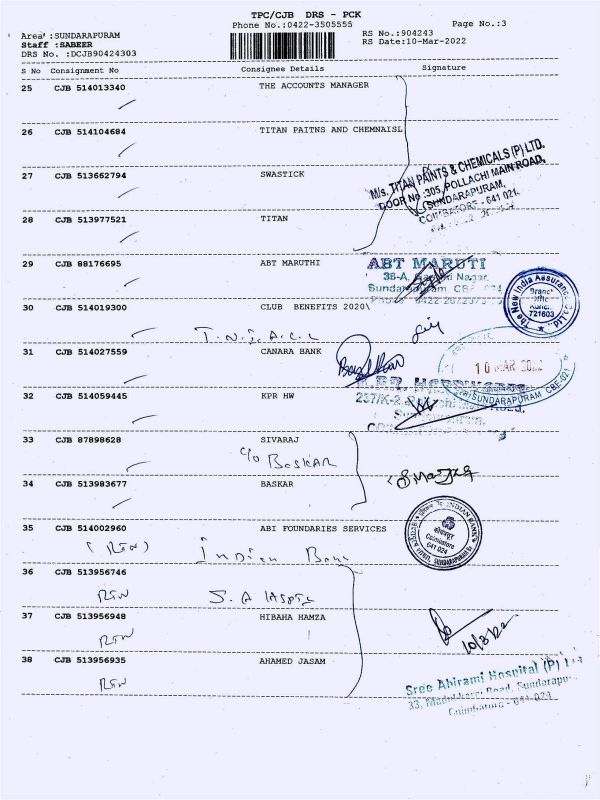 TPC/CJB DRS - PCK
Phone No.:0422-3505555
Page No.:3
Area :SUNDARAPURAM
RS No.:904243
Staff :SABEER
RS Date:10-Mar-2022
DRS No. :DCJB90424303
S No Consignment No Consignee Details Signature
25 CJB 514013340 THE ACCOUNTS MANAGER
26 CJB 514104684 TITAN PAITNS AND CHEMNAISL
27 CJB 513662794 SWASTICK
M/s. TITAN PAINTS & CHEMICALS (P) LTD.
DOOR No :305, POLLACHI MAIN ROAD,
SUNDARAPURAM,
COIMBATORE - 641 021
28 CJB 513977521 TITAN
29 CJB 88176695 ABT MARUTHI
ABT MARUTI
38-A, Nagar,
The New India Assurance Co. Ltd.
Branch Office
721603
30 CJB 514019300 CLUB BENEFITS 2020\
T.N.I.A.C.L
31 CJB 514027559 CANARA BANK
10 MAR 2022
SUNDARAPURAM CBE-021
32 CJB 514059445 KPR HW
33 CJB 87898628 SIVARAJ
C/o BASKAR
34 CJB 513983677 BASKAR
35 CJB 514002960 ABI FOUNDARIES SERVICES
(RTN) Indian Bank
INDIAN BANK
Coimbatore
641 024
36 CJB 513956746
RTN
37 CJB 513956948 HIBAHA HAMZA
RTN
10/3/22
38 CJB 513956935 AHAMED JASAM
RTN
Sree Abirami Hospital (P) Ltd
33, Madukkarai Road, Sundarapu
Coimbatore - 641 024